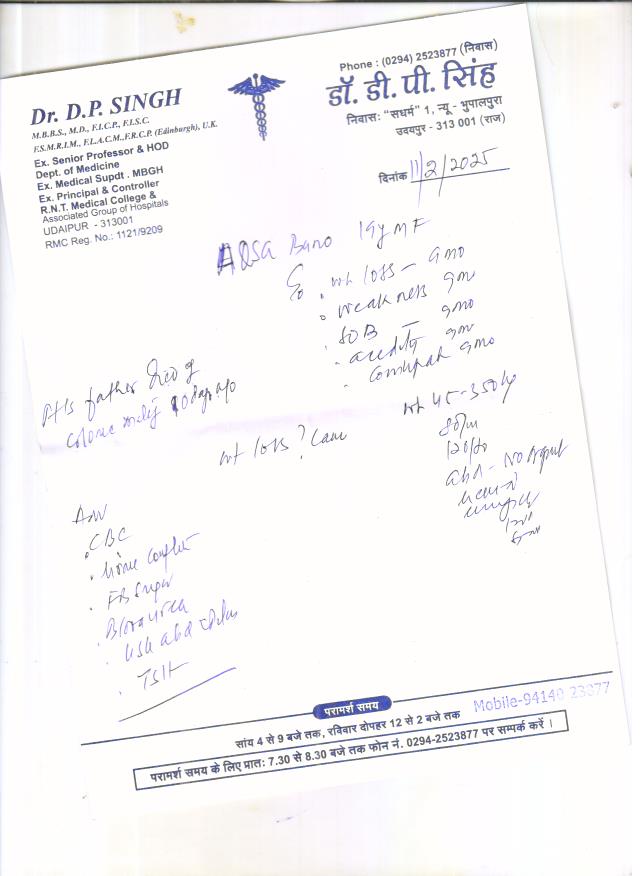 Dr. D.P. SINGH
M.B.B.S., M.D., F.I.C.P., F.I.S.C.
F.S.M.R.I.M., F.L.A.C.M.,F.R.C.P. (Edinburgh), U.K.
Ex. Senior Professor & HOD
Dept. of Medicine
Ex. Medical Supdt . MBGH
Ex. Principal & Controller
R.N.T. Medical College &
Associated Group of Hospitals
UDAIPUR - 313001
RMC Reg. No.: 1121/9209
Phone : (0294) 2523877 (निवास)
डॉ. डी. पी. सिंह
निवासः “सधर्म” 1, न्यू - भुपालपुरा
उदयपुर - 313 001 (राज)
दिनांक 11/2/2025
AQSA Bano 19y F
wt loss - 9mo
weakness 9m
SOB - 9mo
9m
9mo
father
Colonic
wt 45-35
wt loss ? Cause
80/m
120/80
abd - No
Adv
CBC
Urine Complete
FB Sugar
Blood urea
USG abd
TSH
परामर्श समय
सांय 4 से 9 बजे तक, रविवार दोपहर 12 से 2 बजे तक
Mobile-94140 23877
परामर्श समय के लिए प्रातः 7.30 से 8.30 बजे तक फोन नं. 0294-2523877 पर सम्पर्क करें ।